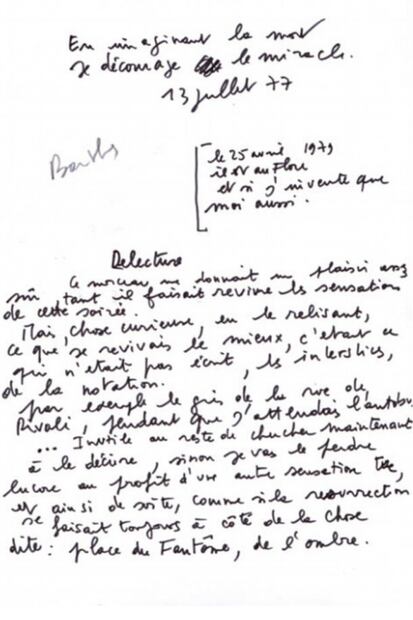 En imaginant la mort
je décourage le miracle.
13 juillet 77
Barthes
le 25 avril 1979
il est au Flore
et si j'invente que
moi aussi.
Delecture
Ce morceau me donnait un plaisir assez
sûr tant il faisait revivre les sensations
de cette soirée.
Mais, chose curieuse, en le relisant,
ce que je revivais le mieux, c'était ce
qui n'était pas écrit, les interstices,
de la notation.
par exemple le gris de la rue de
Rivoli, pendant que j'attendais l'autobus
... Inutile au reste de chercher maintenant
à le décrire, sinon je vais le perdre
encore au profit d'une autre sensation tue,
et ainsi de suite, comme si la résurrection
se faisait toujours à côté de la chose
dite : place du Fantôme, de l'ombre.